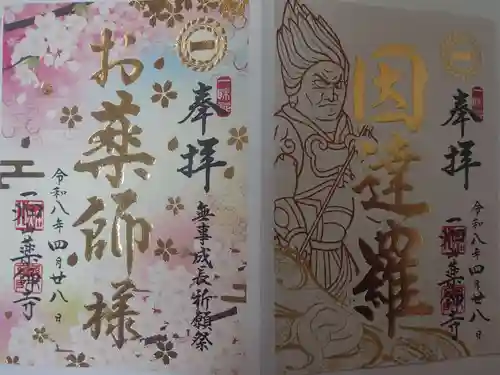 奉拝
無事成長祈願祭
お薬師様
令和八年四月廿八日
一畑山薬師寺
奉拝
因達羅
令和八年四月廿八日
一畑山薬師寺